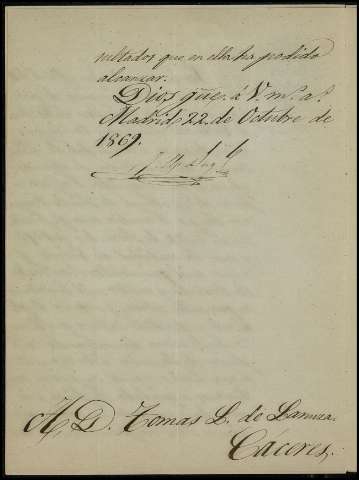 sultados que en ella ha podido
alcanzar.
Dios gue. á V. ms. as.
Madrid 22 de Octubre de
1869.
A, D. Tomas L. de
Cáceres,